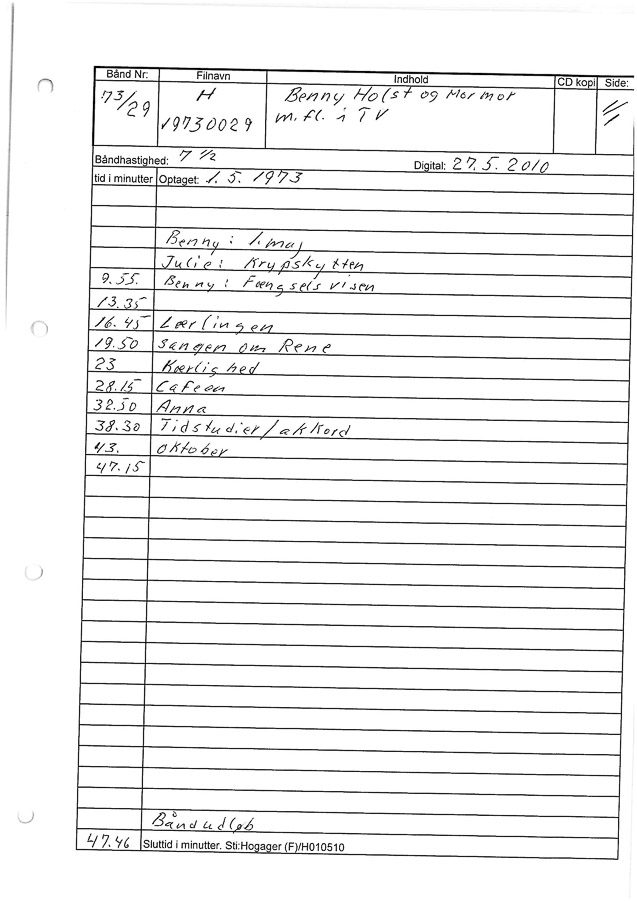 Bånd Nr: Filnavn Indhold CD kopi Side:
73/29 H Benny Holst og Mormor
19730029 m.fl. i TV
Båndhastighed: 7 1/2 Digital: 27.5.2010
tid i minutter Optaget: 1.5.1973
Benny: 1. maj
Julie: Krypskytten
9.55. Benny: Fængselsvisen
13.35
16.45 Lærlingen
19.50 Sangen om Rene
23 Kærlighed
28.15 Cafeen
32.50 Anna
38.30 Tidstudier/akkord
43. Oktober
47.15
Båndudløb
47.46 Sluttid i minutter. Sti:Hogager (F)/H010510